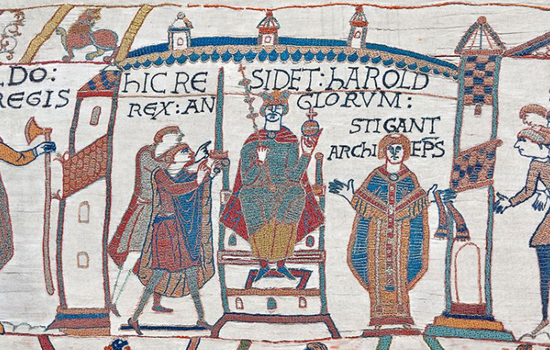 DO:
REGIS
hIC RE SIDET: hAROLD
REX: AN GLORVM:
STIGANT
ARChI EPS